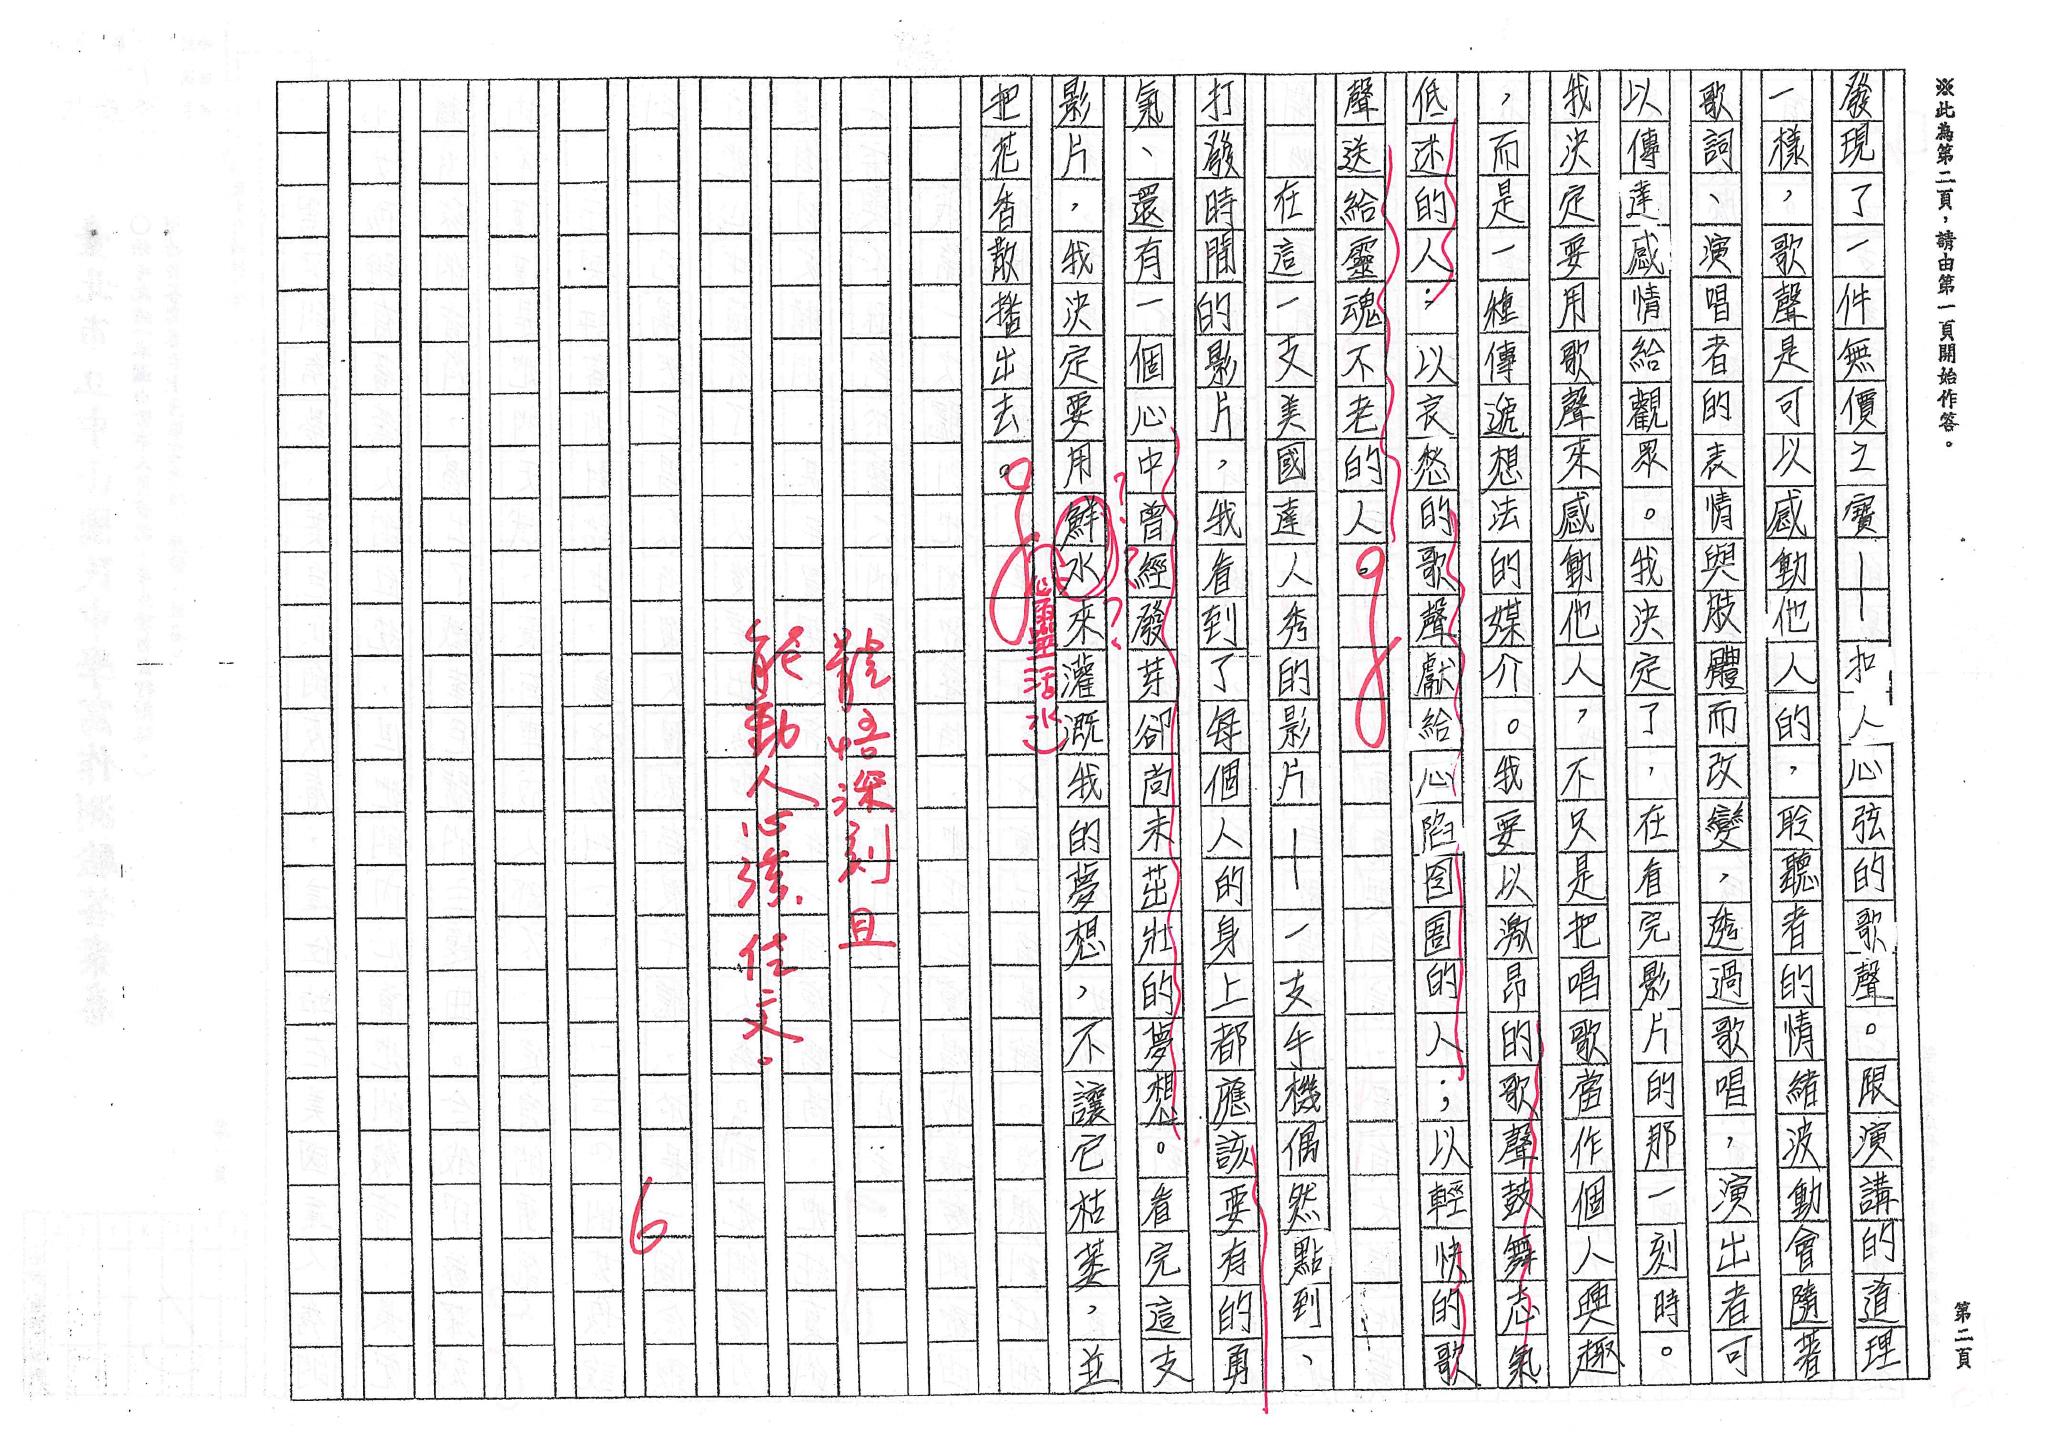 ※此為第二頁，請由第一頁開始作答。
第二頁
發現了一件無價之寶——扣人心弦的歌聲。跟演講的道理
一樣，歌聲是可以感動他人的，聆聽者的情緒波動會隨著
歌詞、演唱者的表情與肢體而改變，透過歌唱，演出者可
以傳達感情給觀眾。我決定了，在看完影片的那一刻時。
我決定要用歌聲來感動他人，不只是把唱歌當作個人興趣
，而是一種傳遞想法的媒介。我要以激昂的歌聲鼓舞志氣
低迷的人；以哀愁的歌聲獻給心陷囹圄的人；以輕快的歌
聲送給靈魂不老的人。
在這一支美國達人秀的影片——一支手機偶然點到、
打發時間的影片，我看到了每個人的身上都應該要有的勇
氣、還有一個心中曾經發芽卻尚未茁壯的夢想。看完這支
影片，我決定要用鮮水來灌溉我的夢想，不讓它枯萎，並
把花香散播出去。
？？？
心靈活水
體悟深刻且
能動人心弦，佳文。
6